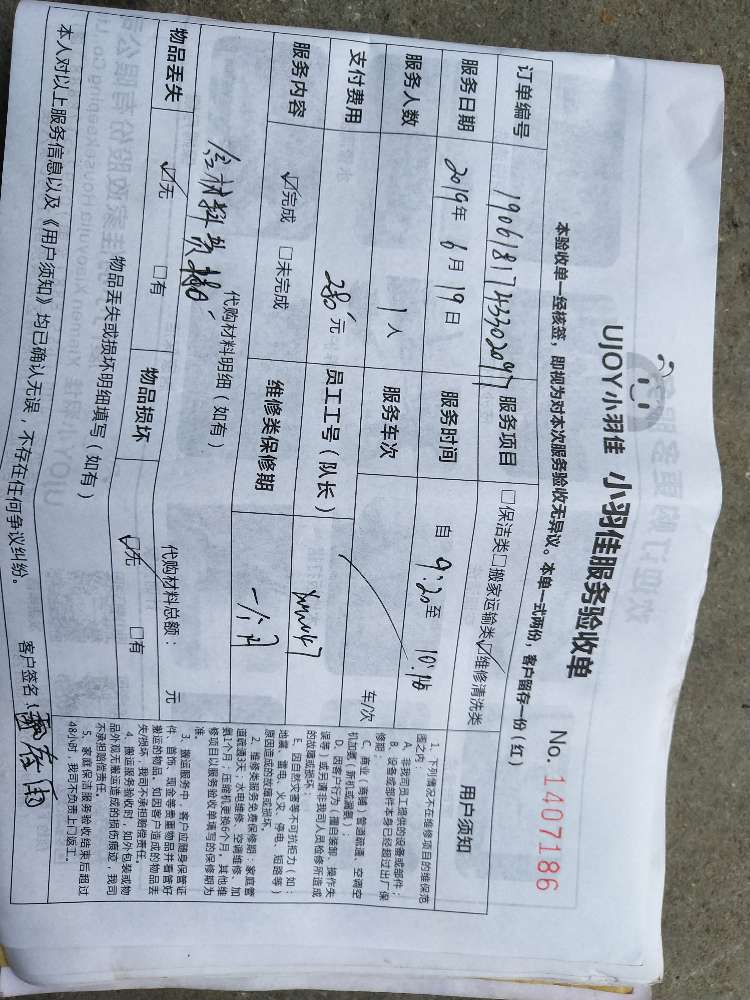 UJOY小羽佳 小羽佳服务验收单
No. 1407186
本验收单一经核签，即视为对本次服务验收无异议。本单一式两份，客户留存一份（红）
订单编号 1906181743302097 服务项目 □保洁类□搬家运输类☑维修清洗类
服务日期 2019年 6月 19日 服务时间 自 9:20至 10:16
服务人数 1人 服务车次 车/次
支付费用 280元 员工工号（队长）
服务内容 ☑完成 □未完成 维修类保修期 一个月
代购材料明细（如有）
含材料费
代购材料总额： 元
物品丢失 ☑无 □有 物品损坏 ☑无 □有
物品丢失或损坏明细填写（如有）
本人对以上服务信息以及《用户须知》均已确认无误，不存在任何争议纠纷。 客户签名：
用户须知
1、下列情况不在维修项目的维保范
围之内：
A、非我司员工提供的设备或部件；
B、设备或部件本身已经超过出厂保
修期；
C、商业（商铺）管道疏通、空调空
机加氨（新机或漏氨）；
D、因客户行为（擅自装卸、操作失
误等）或另请非我司人员检修所造成
的故障或损坏；
E、因自然灾害等不可抗拒力（如：
地震、雷电、火灾、停电、短路等）
原因造成的故障或损坏。
2、维修类服务免费保修期：家庭管
道疏通3天；水电维修、空调维修、加
氨1个月；压缩机更换6个月，其他维
修项目以服务验收单填写的保修期为
准。
3、搬运服务中，客户应随身保管证
件、首饰、现金等贵重物品并看管好
搬运的物品，如因客户造成的物品丢
失/损坏，我司不承担赔偿责任。
4、搬运服务验收时，如外包装或物
品外观无搬运造成的损伤痕迹，我司
不承担赔偿责任。
5、家庭保洁服务验收结束后超过
48小时，我司不负责上门返工。